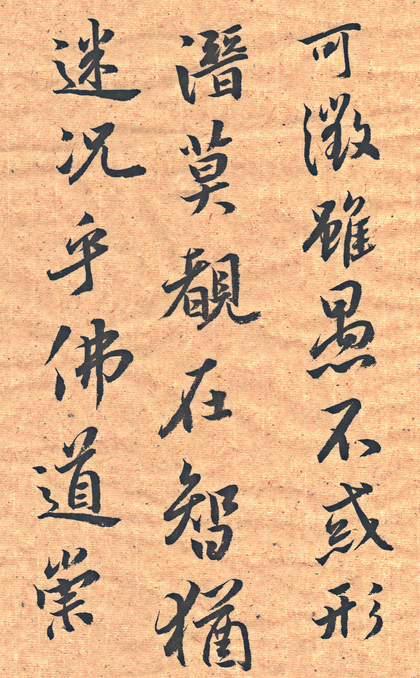 可徵雖愚不惑形
潛莫覩在智猶
迷況乎佛道崇